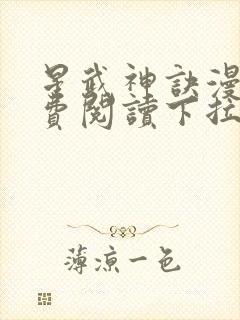 星武神訣漫
費閱讀下拉
薄涼一色